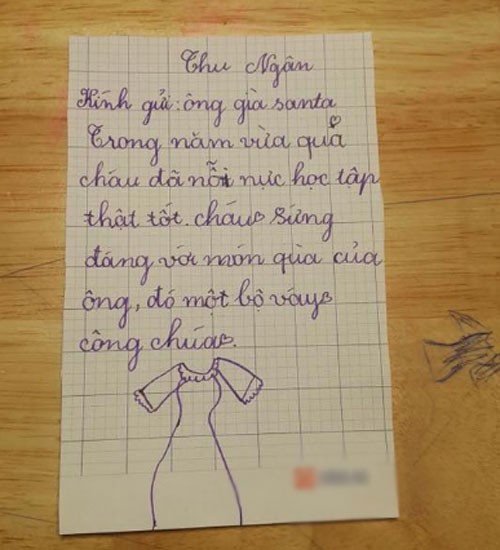 Thu Ngân
Kính gửi: ông già santa
Trong năm vừa quả
cháu đã nỗi nực học tâp
thật tốt. cháu sứng
đáng với món qùa của
ông, đó một bộ váy
công chúa.